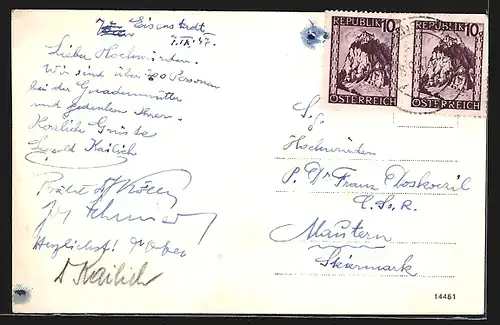 Eisenstadt
7.IX.47.
Liebe Hochwürden.
Wir sind über 100 Personen
bei der Gnadenmutter
und gedenken Ihrer.
Herzliche Grüsse
Leopold Kailich
Herzlichst!
Kailich
REPUBLIK 10
ÖSTERREICH
REPUBLIK 10
ÖSTERREICH
S.g.
Hochwürden
P. Franz
C.Ss.R.
Mautern
Steiermark
14461